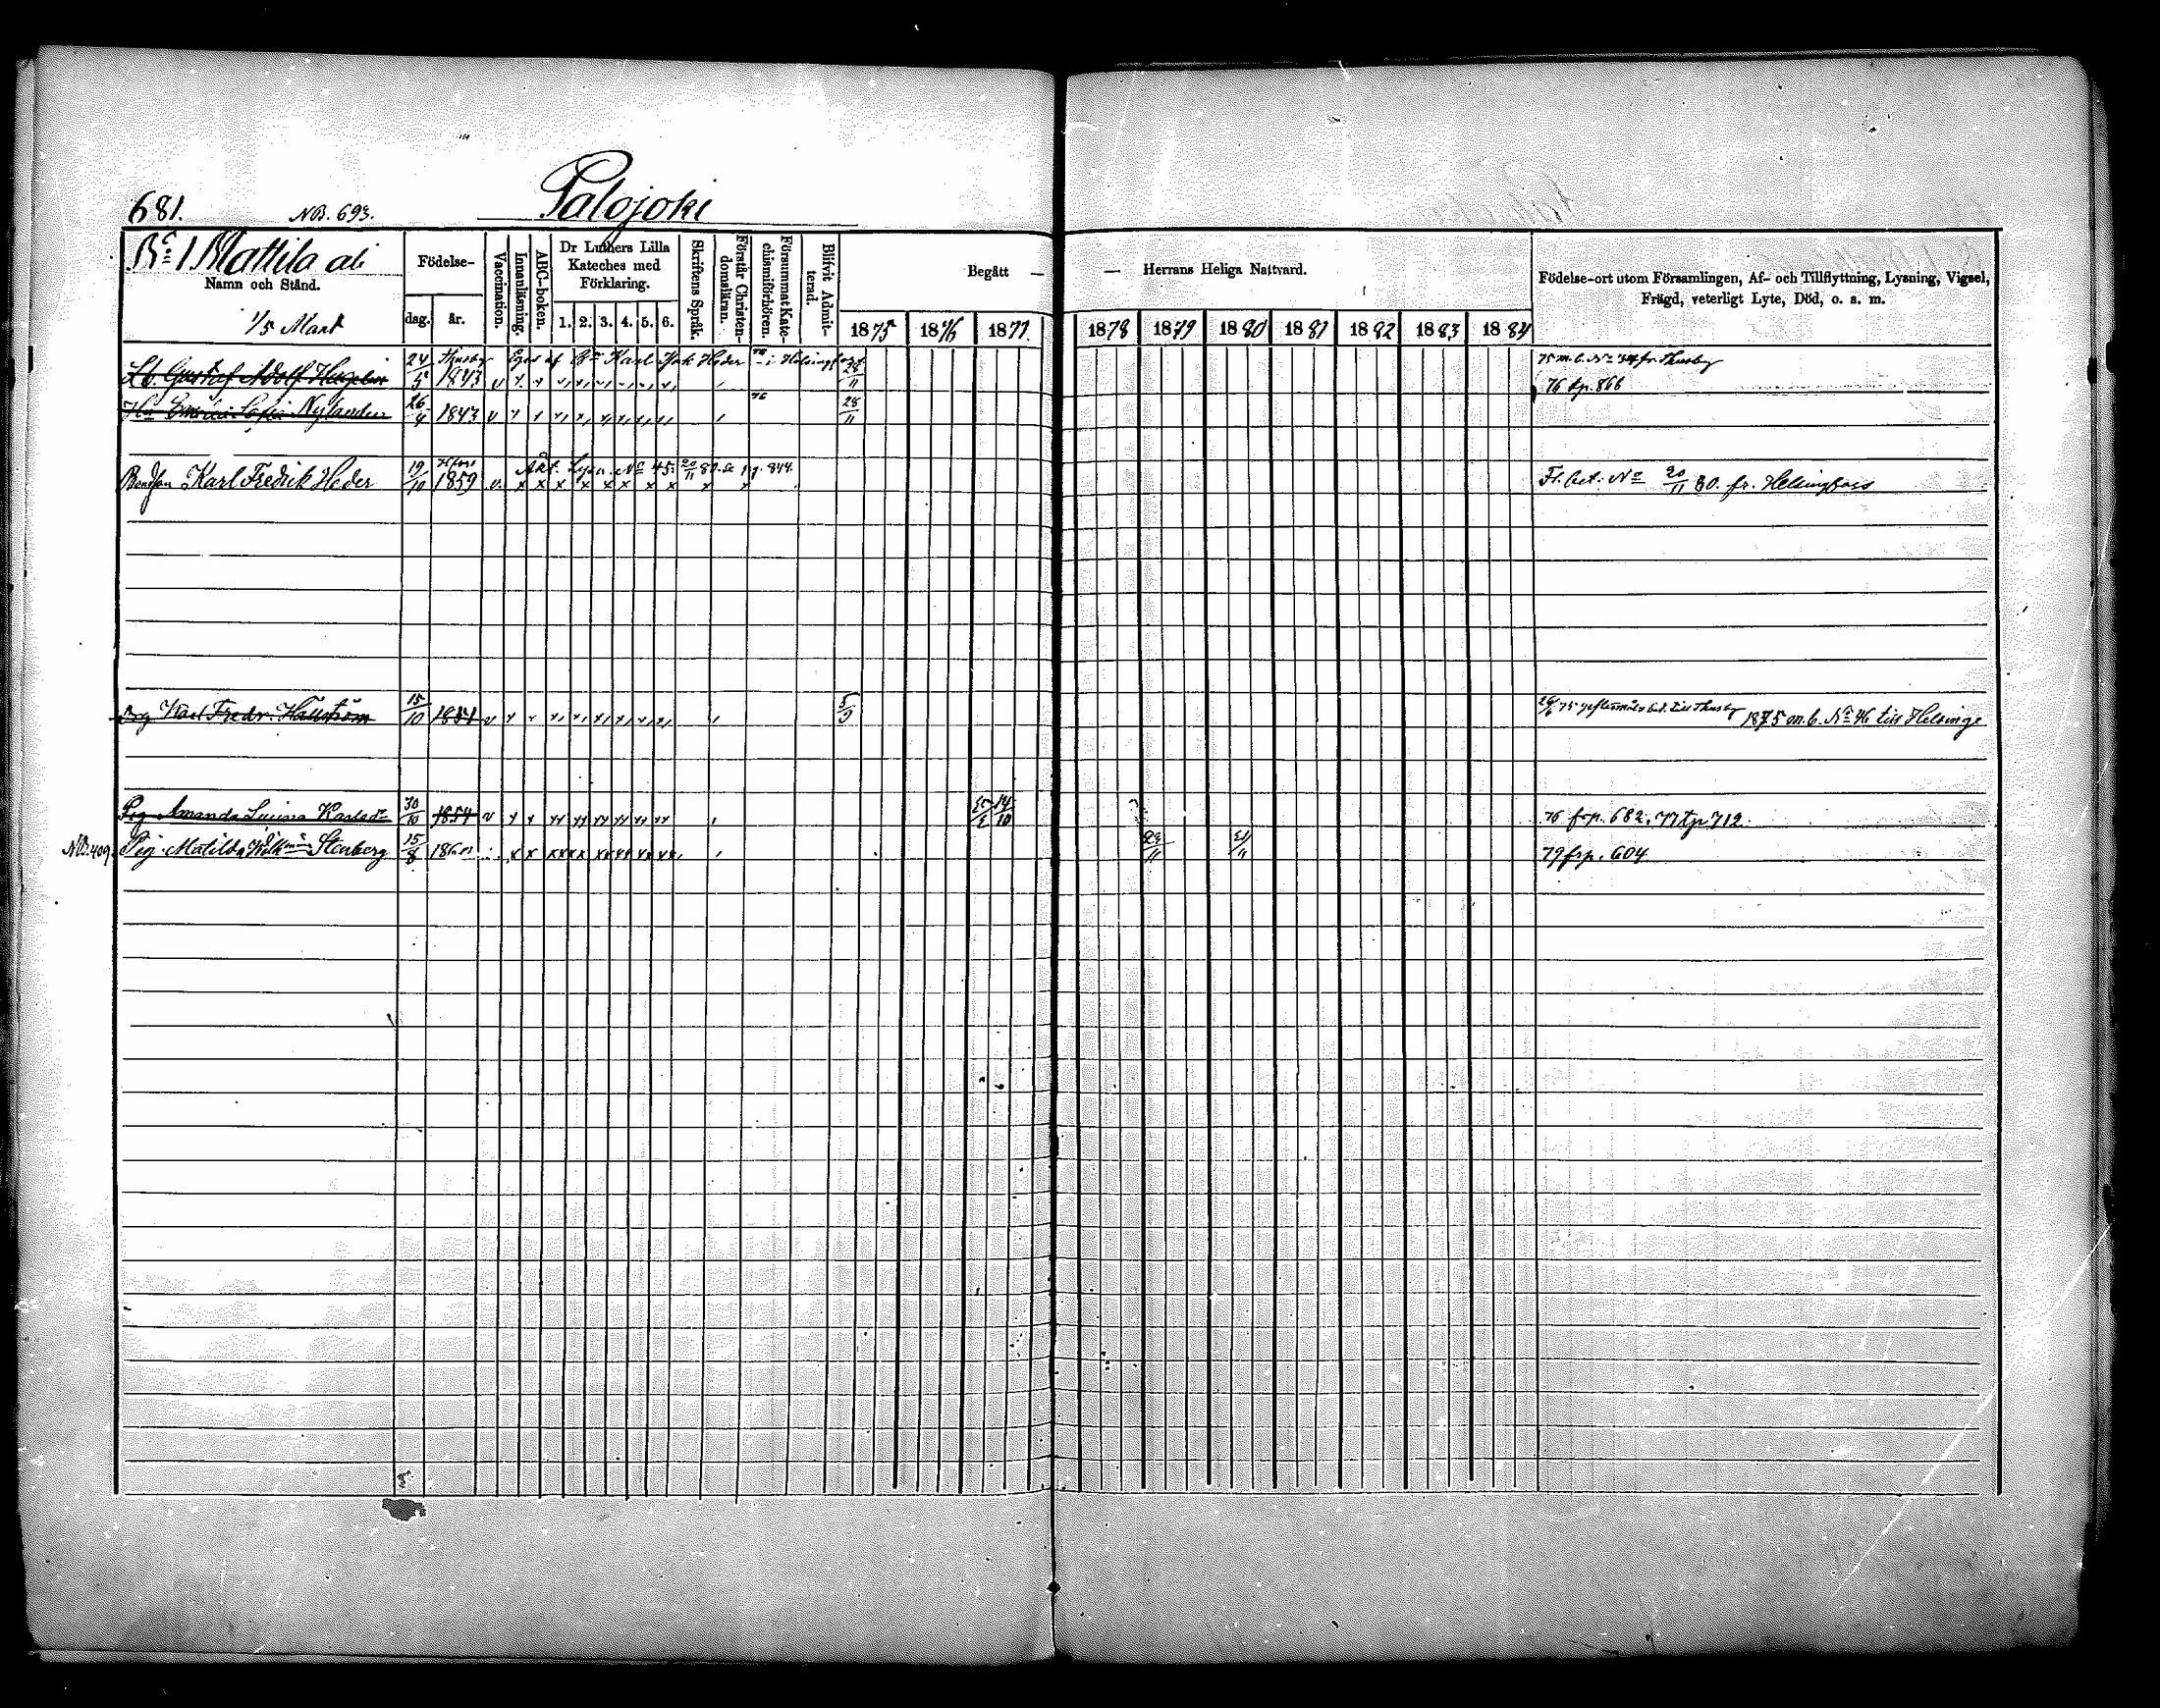 681.
NB. 693.
Palojoki
No 1 Mattila ali
Namn och Stånd.
1/5 Mant
Födelse-
dag.
år.
Vaccination.
Innanläsning.
ABC-boken.
Dr Luthers Lilla
Kateches med
Förklaring.
1. 2. 3. 4. 5. 6.
Skriftens Språk.
Förstår Christen-
domsläran.
Försummat Kate-
chismiförhören.
Blifvit Admit-
terad.
Begått —
— Herrans Heliga Nattvard.
1875 1876 1877. 1878 1879 1880 1881 1882 1883 1884
Födelse-ort utom Församlingen, Af- och Tillflyttning, Lysning, Vigsel,
Frägd, veterligt Lyte, Död, o. s. m.
Thusby Eges af Karl Heder i Helsingfors
Gustaf Adolf 24/5 1843 28/11
fr. Thusby
76 tp. 866
Sofia Nylander 26/4 1843 28/11
Karl Fredrik Heder 19/10 1859
Äkt. Lysn. No 45 20/11 80. 844.
Fl. bet. No 20/11 80. fr. Helsingfors
Karl Fredr. Hallström 15/10 5/9
till Thusby 1875 m. b. No 46 till Helsinge
Pig. Amanda Lovisa Karlsdr 30/10 1854 14/10
76 frp. 682. 77 tp 712.
NB. 409. Pig. Matilda Stenberg 15/8
79 frp. 604